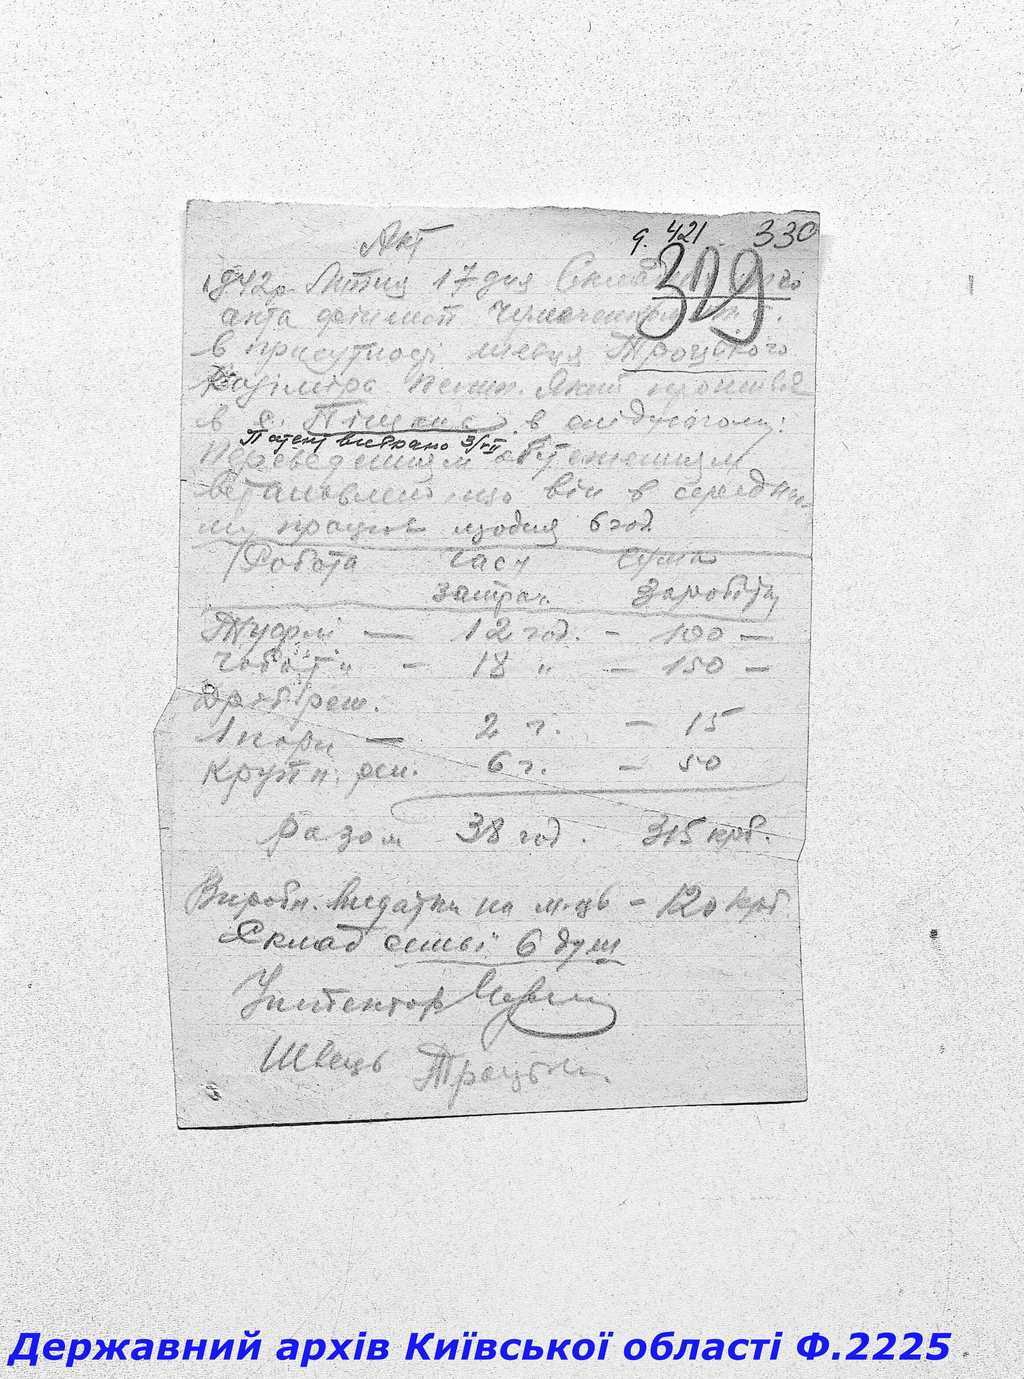 Акт
д. 421 330
329
1942р Лютня 17 дня Складен
акта фінінсп
в присутності шевця Троцького
Який прожива
в с. в слідуючому:
Патент вибрано 3/VII
Переведенням обтеженням
встановлено, що він в середнь-
му працює щодня 6 год.
Робота Часу Сума
Затрач. Заробітку
Туфлі — 12 год. – 100 —
Чоботи – 18 " – 150 —
Дріб. рем.
1 пари — 2 г. – 15
Крупн. рем. 6 г. – 50
Разом 38 год. 315 крб.
Виробн. видатки на м-ць – 120 крб.
Склад сімьї 6 душ
Інспектор
Швець Троцьки
Державний архів Київської області Ф.2225